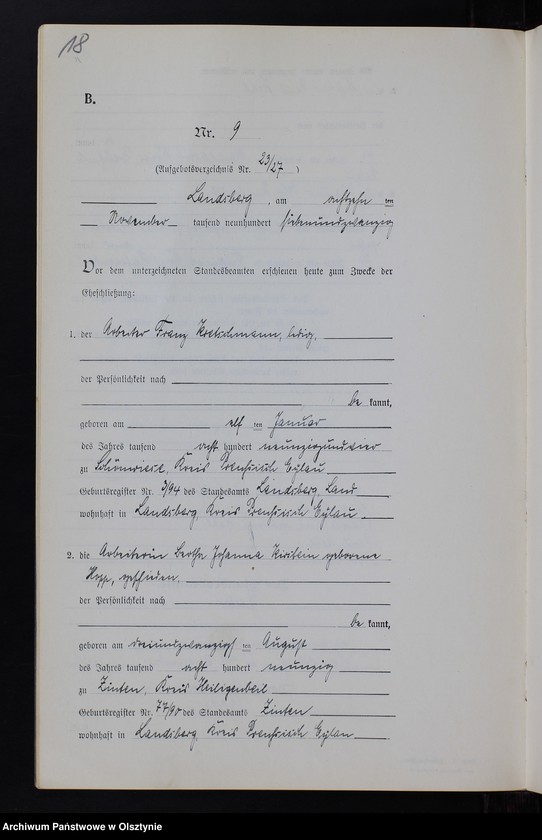 18
B.
Nr. 9
(Aufgebotsverzeichnis Nr. 23/27)
Landsberg, am achtzehn ten
November tausend neunhundert siebenundzwanzig
Vor dem unterzeichneten Standesbeamten erschienen heute zum Zwecke der
Eheschließung:
1. der Arbeiter Franz Kretschmann, ledig,
der Persönlichkeit nach
be kannt,
geboren am elf ten Januar
des Jahres tausend acht hundert neunzigundvier
zu Schönwiese, Kreis Preußisch Eylau
Geburtsregister Nr. 3/94 des Standesamts Landsberg, Land
wohnhaft in Landsberg, Kreis Preußisch Eylau
2. die Arbeiterin Bertha Johanna Kirstein geborene
Hopp, geschieden,
der Persönlichkeit nach
be kannt,
geboren am dreiundzwanzigs ten August
des Jahres tausend acht hundert neunzig
zu Zinten, Kreis Heiligenbeil
Geburtsregister Nr. 77/90 des Standesamts Zinten
wohnhaft in Landsberg, Kreis Preußisch Eylau
Archiwum Państwowe w Olsztynie